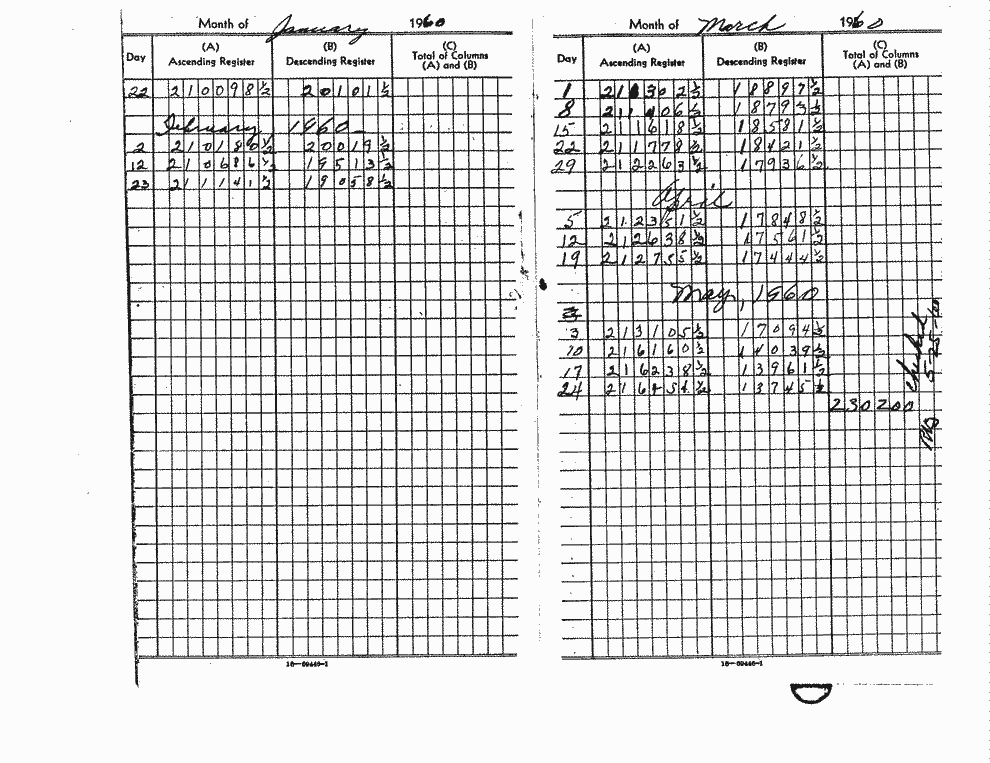 Month of January 1960
Day (A) Ascending Register (B) Descending Register (C) Total of Columns (A) and (B)
22 210098½ 20101½
February 1960
2 210180½ 20019½
12 210686½ 19513½
23 211141½ 19058½
16—69440-1
Month of March 1960
Day (A) Ascending Register (B) Descending Register (C) Total of Columns (A) and (B)
1 211302½ 18897½
8 211406½ 18793½
15 211618½ 18581½
22 211778½ 18421½
29 212263½ 17936½
April
5 212351½ 17848½
12 212638½ 17561½
19 212755½ 17444½
May, 1960
3 213105½ 17094½
10 216160½ 14039½
17 216238½ 13961½
24 216454½ 13745½
230200
checked
5-25-60
16—69440-1